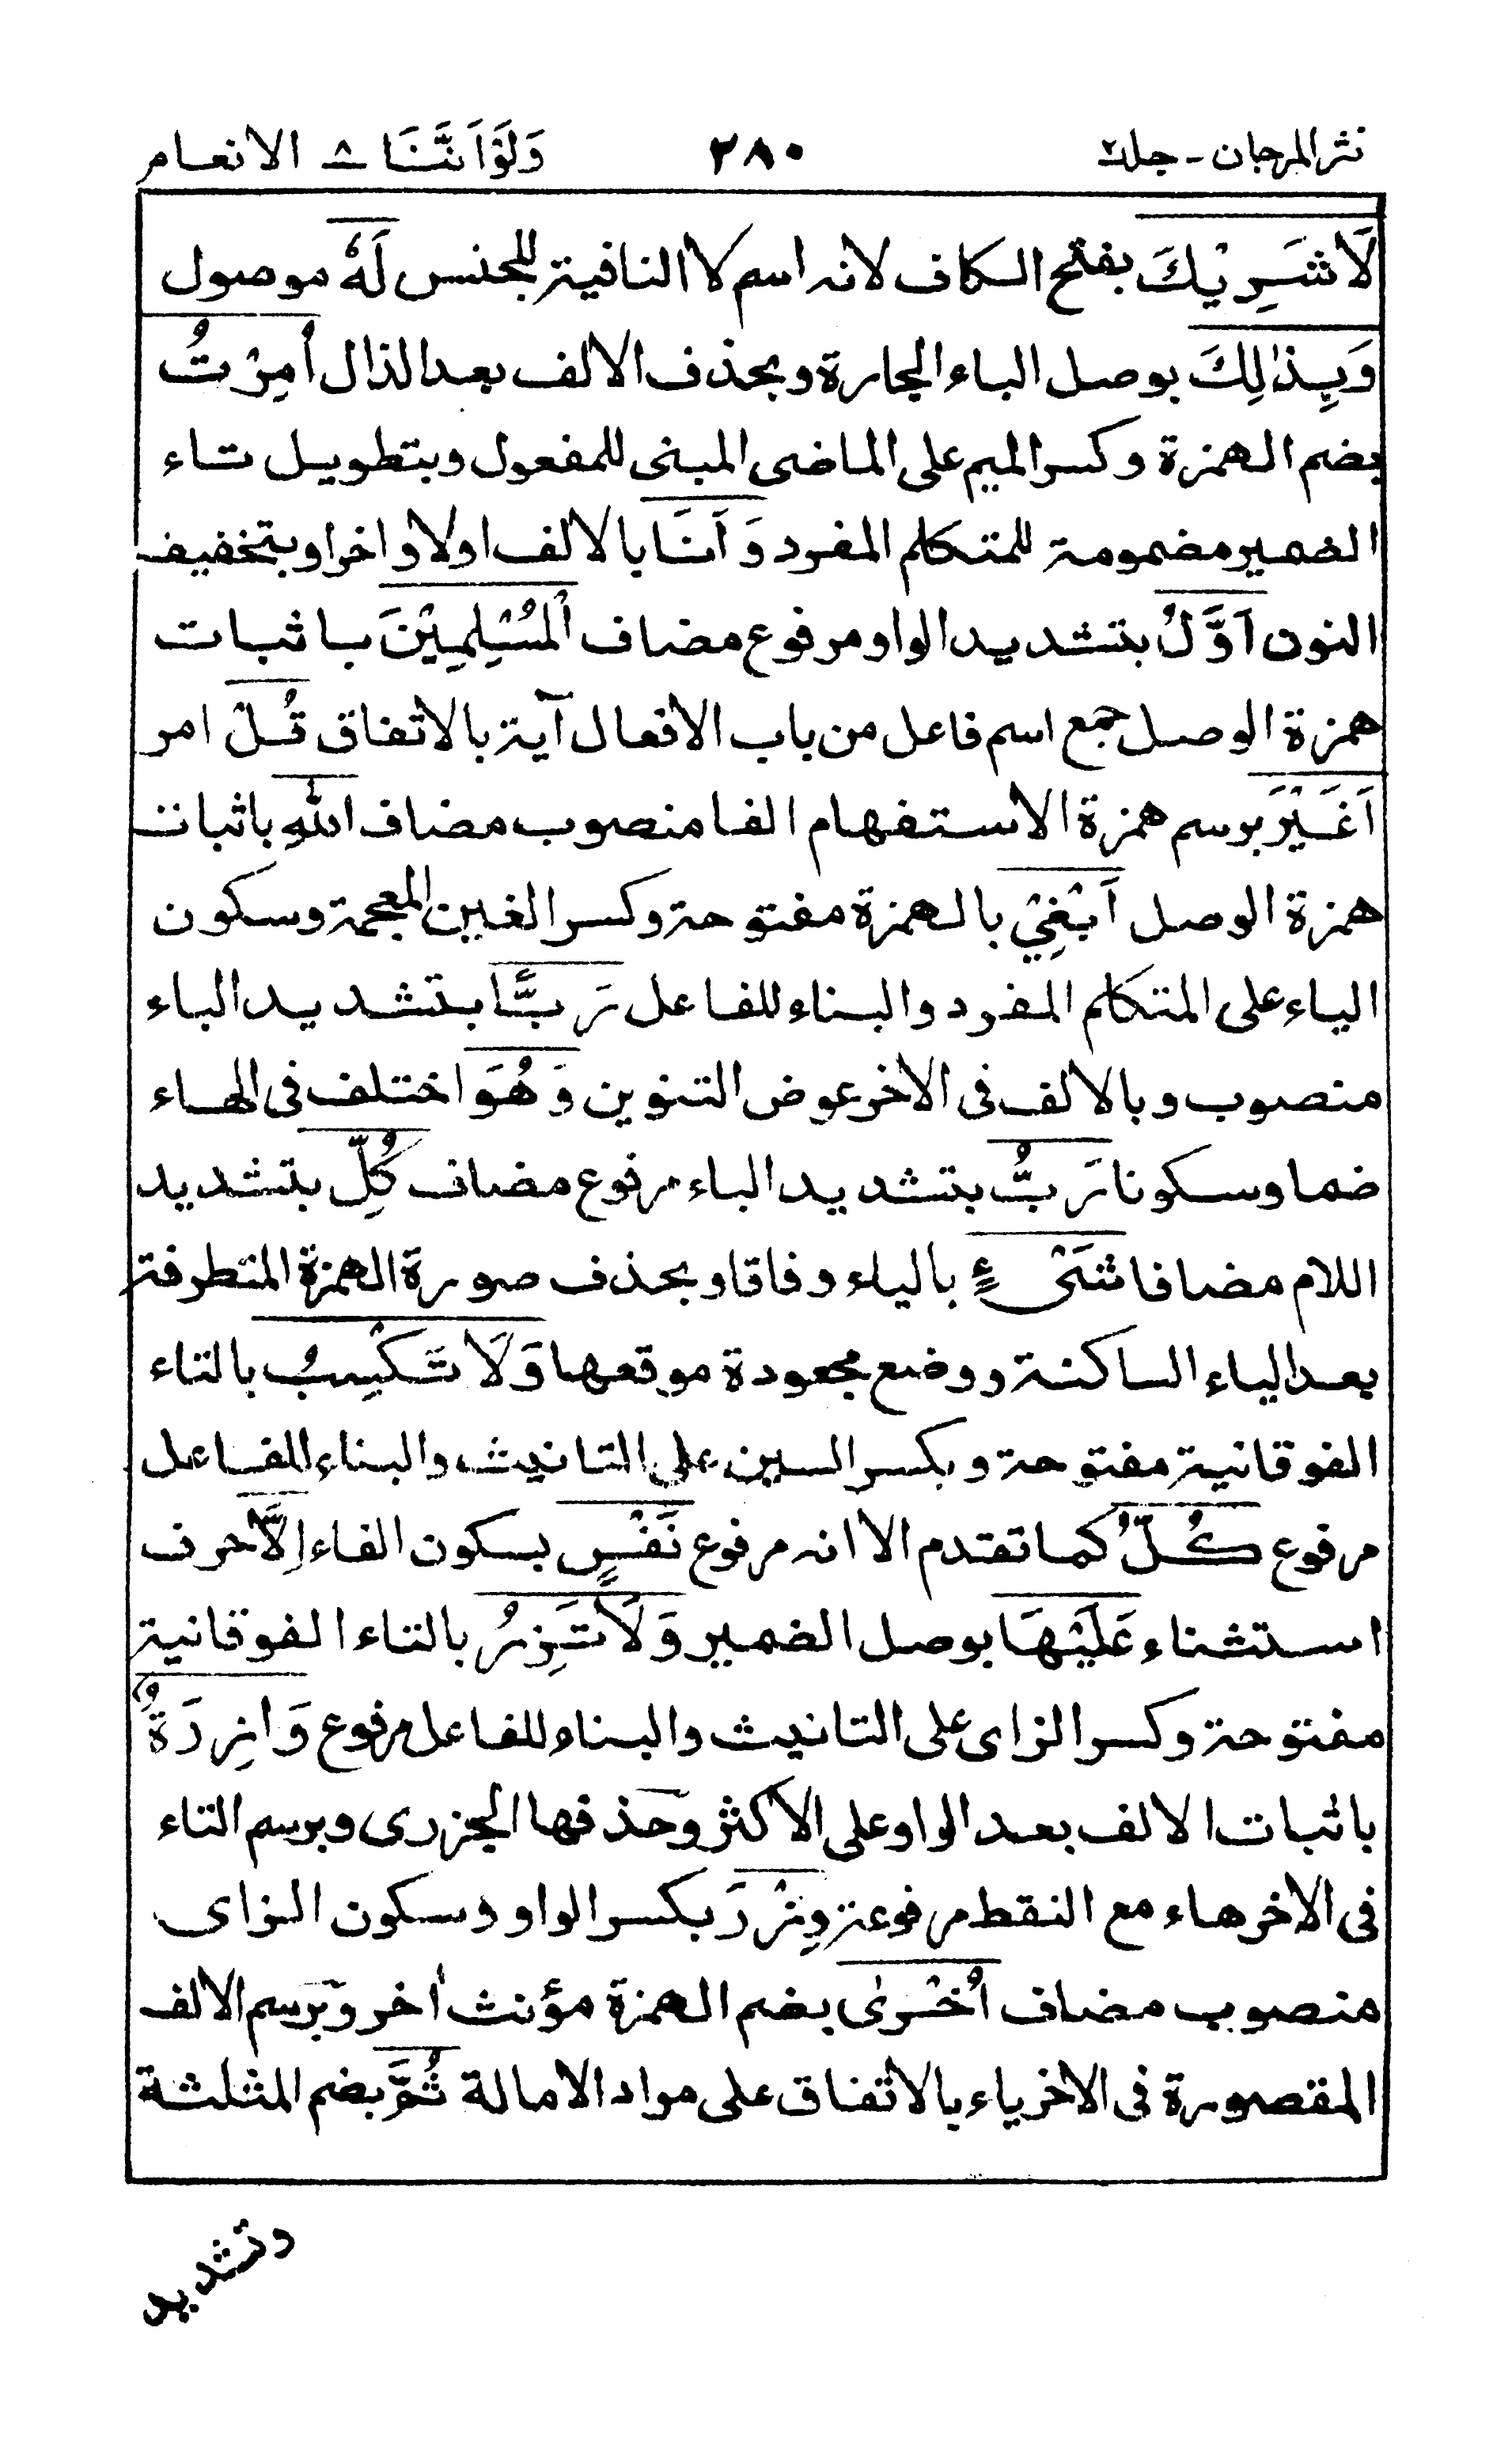 نثر المرجان - جلد٢ ٢٨٠ وَلَوْاَنَّنَا ٨ الانعام
لَا شَرِيْكَ بفتح الكاف لانه اسم لا النافية للجنس لَهٗ موصول
وَبِذٰلِكَ بوصل الباء الجارة وبحذف الالف بعد الذال اُمِرْتُ
بضم الهمزة وكسر الميم على الماضى المبنى للمفعول وبتطويل تاء
الضمير مضمومة للمتكلم المفرد وَ اَنَا بالالف اولا و اخرا وبتخفيف
النون اَوَّلُ بتشديد الواو مرفوع مضاف الْمُسْلِمِيْنَ باثبات
همزة الوصل جمع اسم فاعل من باب الافعال آية بالاتفاق قُلْ امر
اَغَيْرَ برسم همزة الاستفهام الفا منصوب مضاف اللّٰهِ باثبات
همزة الوصل اَبْغِيْ بالهمزة مفتوحة وكسر الغين المعجمة وسكون
الياء على المتكلم المفرد والبناء للفاعل رَبًّا بتشديد الباء
منصوب وبالالف فى الاخر عوض التنوين وَ هُوَ اختلف فى الهاء
ضما وسكونا رَبُّ بتشديد الباء مرفوع مضاف كُلِّ بتشديد
اللام مضافا شَىْءٍ بالياء وفاقا وبحذف صورة الهمزة المتطرفة
بعد الياء الساكنة ووضع مجعودة موقعها وَلَا تَكْسِبُ بالتاء
الفوقانية مفتوحة وبكسر السين على التانيث والبناء للفاعل
مرفوع كُلُّ كما تقدم الا انه مرفوع نَفْسٍ بسكون الفاء اِلَّا حرف
استثناء عَلَيْهَا بوصل الضمير وَلَا تَزِرُ بالتاء الفوقانية
مفتوحة وكسر الزاى على التانيث والبناء للفاعل مرفوع وَازِرَةٌ
باثبات الالف بعد الواو على الاكثر وحذفها الجزرى وبرسم التاء
فى الاخر هاء مع النقط مرفوعة وِزْرَ بكسر الواو وسكون الزاى
منصوب مضاف اُخْرٰى بضم الهمزة مؤنث اٰخر وبرسم الالف
المقصورة فى الاخر ياء بالاتفاق على مراد الامالة ثُمَّ بضم المثلثة
وتشديد